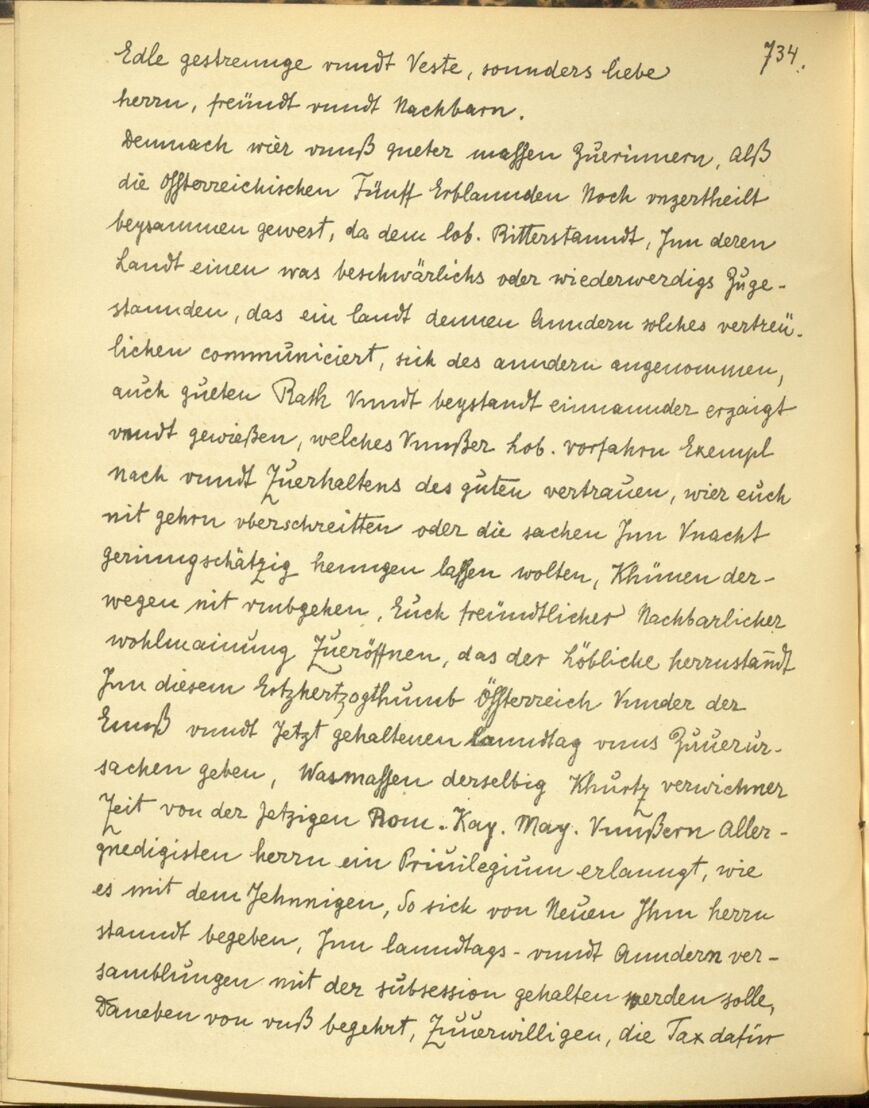 734.
Edle gestrennge vnndt Veste, sonnders liebe
herrn, freündt vnndt Nachbarn.
Demnach wier vnnß gueter massen Zuerinnern, Alß
die Össterreichischen Fünff Erblannden Noch vnzertheilt
beysammen gewest, da dem lob. Ritterstanndt, Jnn deren
Landt einen was beschwärlichs oder wiederwerdigs Zuge-
stannden, das ein landt dennen Anndern solches vertreü-
lichen communiciert, sich des anndern angenommen,
auch gueten Rath Vnndt beystandt einnannder erzaigt
vnndt gewießen, welches Vnnßer Lob. vorfahrn Exempl
nach vnndt Zuerhaltens des guten vertrauen, wier euch
nit gehrn vberschreitten oder die sachen Jnn Vnacht
geringschätzig henngen lassen wolten, Khünen der-
wegen nit vmbgehen, Euch freündtlicher Nachbarlicher
wohlmainung Zueröffnen, das der Löbliche herrnstandt
Jnn diesem Ertzhertzogthumb Össterreich Vnnder der
Ennß vnndt Jetzt gehaltenen Lanndtag vnns Zuuerur-
sachen geben, Wasmassen derselbig Khurtz verwichner
Zeit von der Jetzigen Rom. Kay. May. Vnnßern Aller-
gnedigisten herrn ein Priuilegium erlanngt, wie
es mit dem Jehnnigen, So sich von Neuen Jhnn herrn
standt begeben, Jnn lanndtags- vnndt Anndern ver-
samblungen mit der subsession gehalten werden solle,
Daneben von vnß begehrt, Zuuerwilligen, die Tax dafür